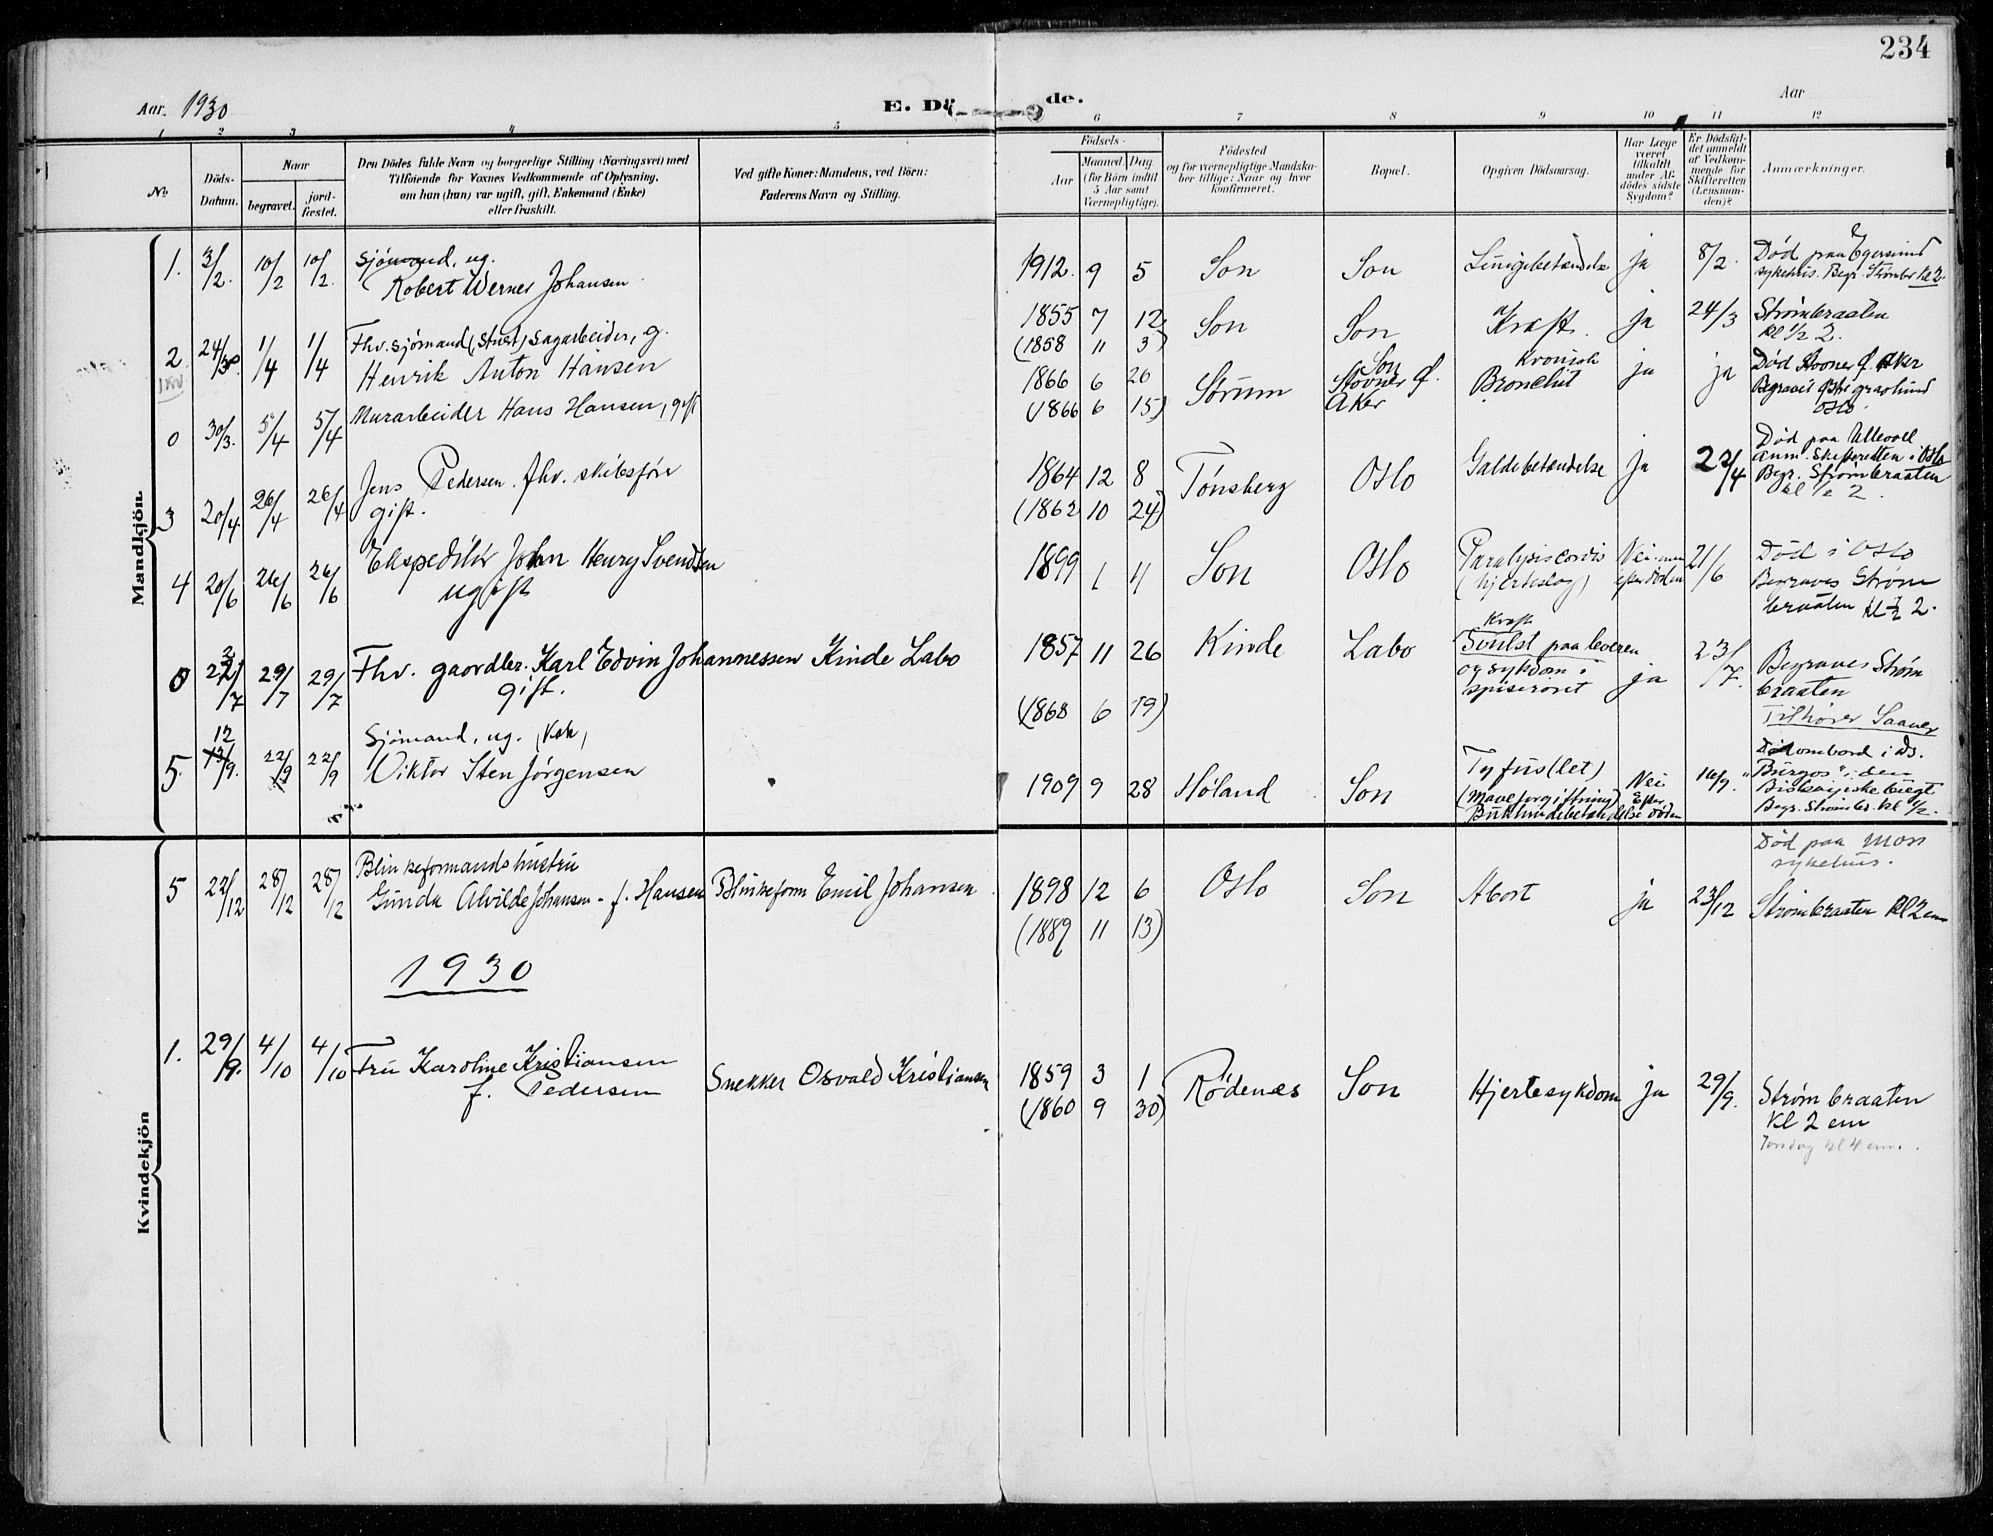 234
Aar. 1930
E. Dö de.
Aar
1 2 3 4 5 6 7 8 9 10 11 12
No
Döds-Datum.
Naar
begravet.
jord-fæstet.
Den Dödes fulde Navn og borgerlige Stilling (Næringsvei) med
Tilföiende for Voxnes Vedkommende af Oplysning,
om han (hun) var ugift, gift, Enkemand (Enke)
eller fraskilt.
Ved gifte Koner: Mandens, ved Börn:
Faderens Navn og Stilling.
Födsels-
Aar
Maaned. Dag.
(for Börn indtil
5 Aar samt
Værnepligtige).
Födested
og for værnepligtige Mandska-
ber tillige: Naar og hvor
konfirmeret.
Bopæl.
Opgiven Dödsaarsag.
Har Læge
været
tilkaldt
under Af-
dödes sidste
Sygdom?
Er Dödsfal-
det anmeldt
af Vedkom-
mende for
Skifteretten
(Lensman-
den)?
Anmærkninger.
Mandkjön.
1. 3/2. 10/2 10/2. Sjömand, ug.
Robert Werner Johansen
1912. 9 5 Son Son Lungebetændelse ja 8/2. Død paa Egersund
sykehus. Begr. Strømbr kl 2.
2 24/3 1/4 1/4 Fhv. sjømand, (Stuert) Sagarbeider, g.
Henrik Anton Hansen
1855 7 12 Son Son Kræft. ja 24/3 Strømbraaten
(1858 11 3) kl 1/2 2.
0 30/3. 5/4 5/4 Murarbeider Hans Hansen, gift
1866 6 20 Sørum Son Stovner Ø. Aker Kronisk Bronchit ja ja Død Stovner Ø. Aker
(1866 6 15) Begravet Østre gravlund
Oslo.
3 20/4. 26/4 26/4 Jens Pedersen. fhv. skibsfører
gift.
1864 12 8 Tønsberg Oslo Galdebetændelse ja 22/4 Død paa Ullevaal
anm. Skifteretten i Oslo
(1862 10 24) Begr. Strømbraaten
kl 1/2 2.
4 20/6 26/6 26/6 Ekspeditör John Henry Svendsen
ugift
1899 1 11 Son Oslo Paralysis cordis
(hjerteslag) Nei
efter døden 21/6 Død i Oslo
Begraves Strøm
braaten kl 1/2 2.
0 22/7 29/7 29/7 Fhv. gaardbr. Karl Edvin Johannessen Kinde Labo
gift.
1857 11 26 Kinde Labo Kræft
Svulst paa leveren
og sykdom i
spiserøret ja 23/7. Begraves Strøm
braaten
(1868 6 19) Tilhører Saaner
5. 12/9. 22/9 22/9 Sjömand, ug.
Viktor Sten Jørgensen
1909 9 28 Høland Son Tyfus (let)
(Maveforgiftning)
Bukhindebetændelse Nei
Efter døden 16/9. Død ombord i D/s.
"Burgos" i den
Biskayiske bugt
Begr. Strømbr. kl 1/2.
Kvindekjön
5 22/12 28/12 28/12 Blinkeformands hustru
Gunda Alvilde Johansen - f. Hansen Blinkeform Emil Johansen
1898 12 6 Oslo Son Abort ja 23/12 Død paa Moss
sykehus.
Strømbraaten kl 2 em
(1889 11 13)
1930
1. 29/9. 4/10 4/10 Fru Karoline Kristiansen
f. Pedersen Snekker Osvald Kristiansen
1859 3 1 Rødenæs Son Hjertesykdom ja 29/9. Strømbraaten
(1860 9 30) kl 2 em
kl 4 em.